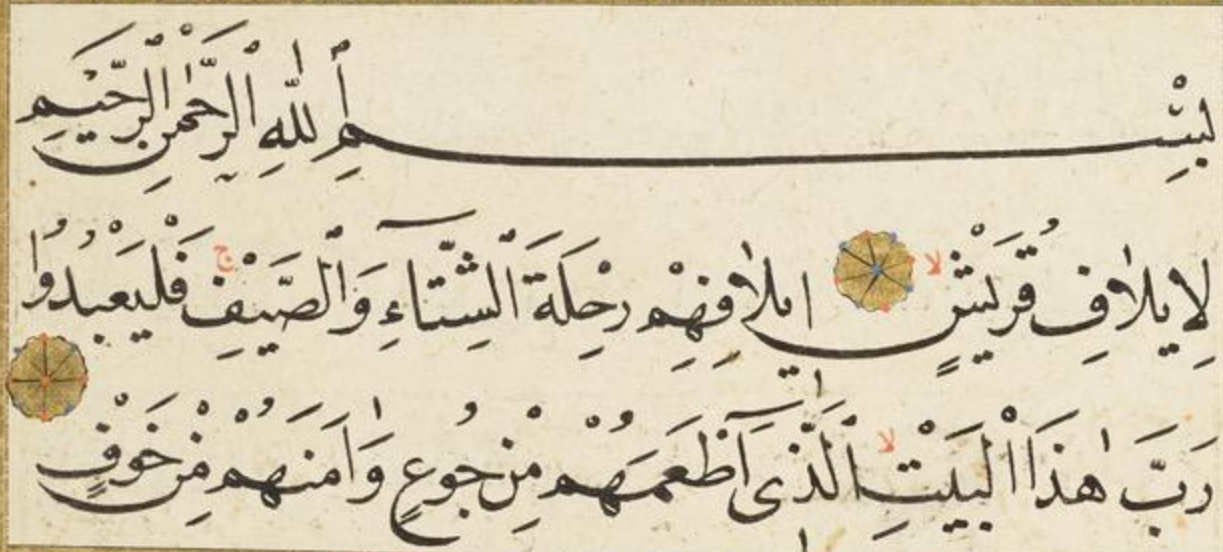 بِسْمِ اللّٰهِ الرَّحْمٰنِ الرَّحٖيمِ
لِاٖيلَافِ قُرَيْشٍ لا اٖيلَافِهِمْ رِحْلَةَ الشِّتَٓاءِ وَالصَّيْفِ ج فَلْيَعْبُدُوا
رَبَّ هٰذَا الْبَيْتِ لا اَلَّذٖٓى اَطْعَمَهُمْ مِنْ جُوعٍ وَاٰمَنَهُمْ مِنْ خَوْفٍ